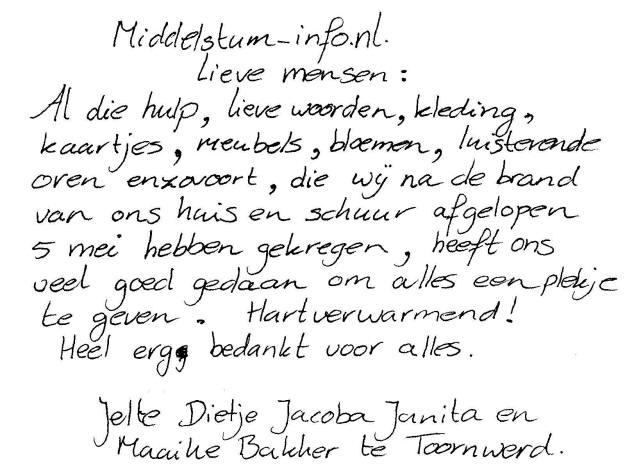 Middelstum-info.nl.
Lieve mensen:
Al die hulp, lieve woorden, kleding,
kaartjes, meubels, bloemen, luisterende
oren enzovoort, die wij na de brand
van ons huis en schuur afgelopen
5 mei hebben gekregen, heeft ons
veel goed gedaan om alles een plekje
te geven. Hartverwarmend!
Heel erg bedankt voor alles.
Jelte Dietje Jacoba Janita en
Maaike Bakker te Toornwerd.